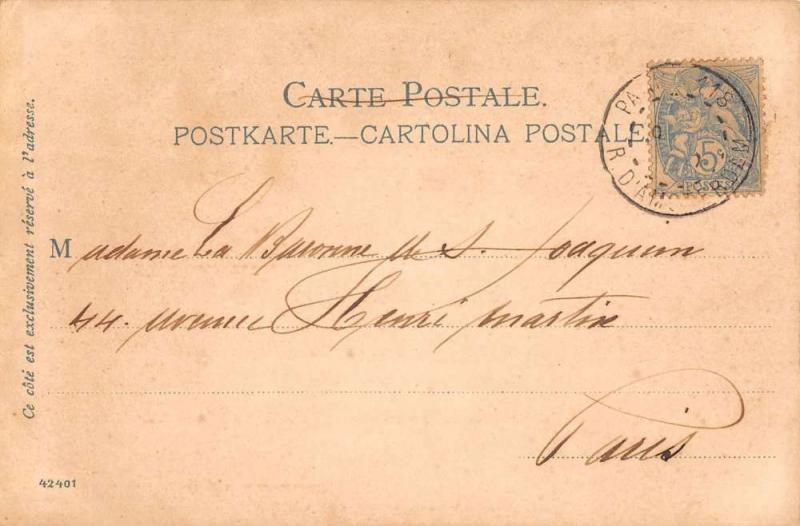 CARTE POSTALE.
POSTKARTE.—CARTOLINA POSTALE
Ce côté est exclusivement réservé à l'adresse.
PARIS 118
R. D'AMSTERDAM
5
POSTES
Madame La Baronne de S. Joaquim
44. avenue Henri Martin
Paris
42401